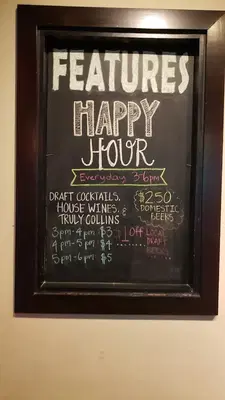 FEATURES
HAPPY
HOUR
Everyday 3-6pm
DRAFT COCKTAILS,
HOUSE WINES, &
TRULY COLLINS
$2.50
DOMESTIC
BEERS
3pm-4pm $3
4pm-5pm $4
5pm-6pm $5
$1 Off
LOCAL
DRAFT